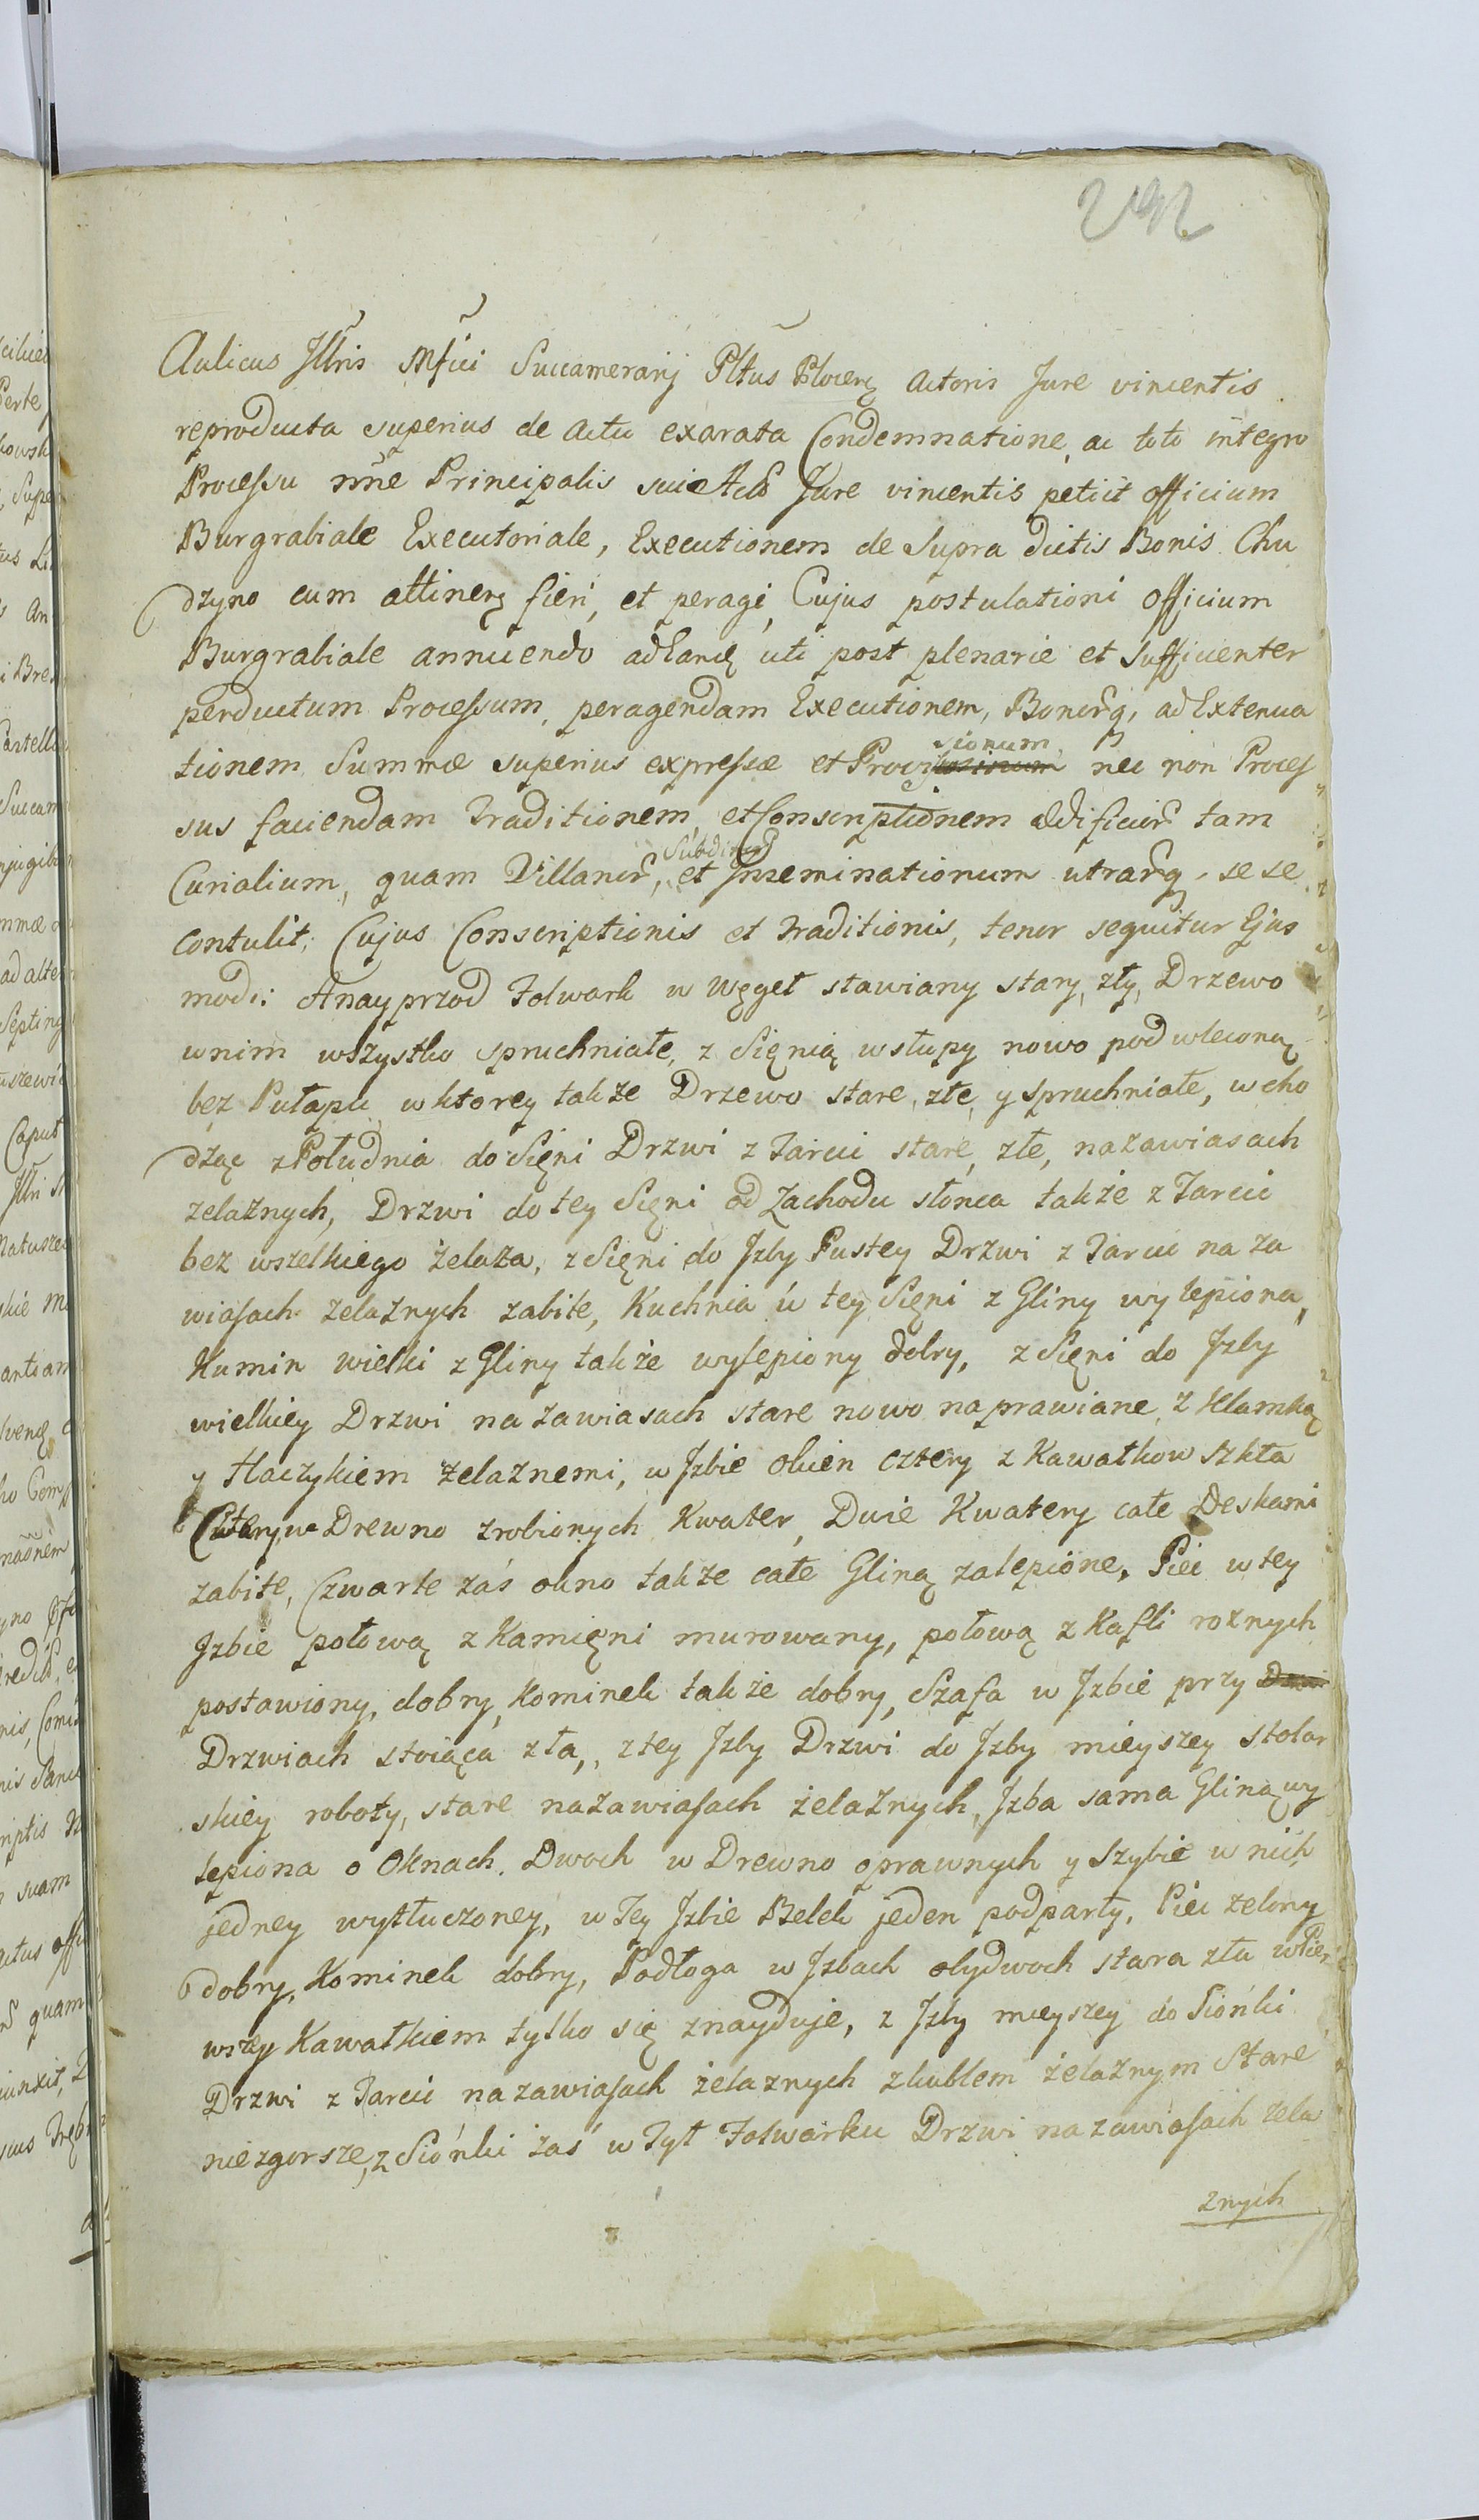 Aulicus Jllris Mfici Succamerarij Pltus Plocen Actoris Jure vincentis
reproducta superius de Actu exarata Condemnatione, ac toto integro
Processu nne Principalis sui Acto Jure vincentis petiit officium
Burgrabiale Executoriale, Executionem de Supra dictis Bonis Chu
dzyno cum attinen fieri, et peragi, Cujus postulationi officium
Burgrabiale annuendo ad Eanq uti post plenarie et Sufficienter
perductum Processum, peragendam Executionem, Bonorq, ad Extenua
tionem Summæ superius expressæ et Provisionum nec non Proces
sus faciendam Traditionem, et Conscriptionem ædificior tam
Curialium, quam Villanor, Subditor et Jnseminationum utrarq, sese
contulit; Cujus Conscriptionis et Traditionis, tenor sequitur Ejus
modi: Anayprzod Folwark w Węgeł stawiany stary, zły, Drzewo
wnim wszystko spruchniałe, z Sięnią wsłupy nowo podwleconą
bez Pułapu, wktorey także Drzewo stare, złe, y spruchniałe, wcho
dząc z Południa do Sięni Drzwi z Tarcic stare, złe, nazawiasach
zelaznych, Drzwi do tey Sięni od Zachodu słonca także z Tarcic
bez wszelkiego żelaza, z Sięni do Jzby Pustey Drzwi z Tarcic na za
wiasach zelaznych zabite, Kuchnia w tey Sięni z Gliny wylepiona,
Kumin wielki z Gliny także wylepiony dobry, z Sięni do Jzby
wielkiey Drzwi na zawiasach stare nowo naprawiane, z Klamką
y Haczykiem żelaznemi, w Jzbie okien cztery z Kawałkow szkła
Cztery, w Drewno zrobionych Kwater, Dwie Kwatery całe Deskami
zabite, Czwarte zaś okno także całe Gliną zalepione, Piec wtey
Jzbie połową z Kamięni murowany, połową z Kafli roznych
postawiony, dobry, Kominek także dobry, Szafa w Jzbie przy Drzwi
Drzwiach stoiąca zła, z tey Jzby Drzwi do Jzby mieyszey stolar
skiey roboty, stare nazawiasach żelaznych, Jzba sama Gliną wy
lepiona o Oknach Dwoch w Drewno oprawnych y Szybie wnich
jedney wytłuczoney, w Tey Jzbie Belek jeden podparty, Piec zelony
dobry, Kominek dobry, Podłoga w Jzbach obydwoch stara zła w Pier
wszey Kawałkiem tylko się znayduje, z Jzby mieyszey do Siońki
Drzwi z Tarcic nazawiasach żelaznych zkublem żelaznym Stare
niezgorsze, z Siońki zaś w Tył Folwarku Drzwi nazawiasach zela
znych